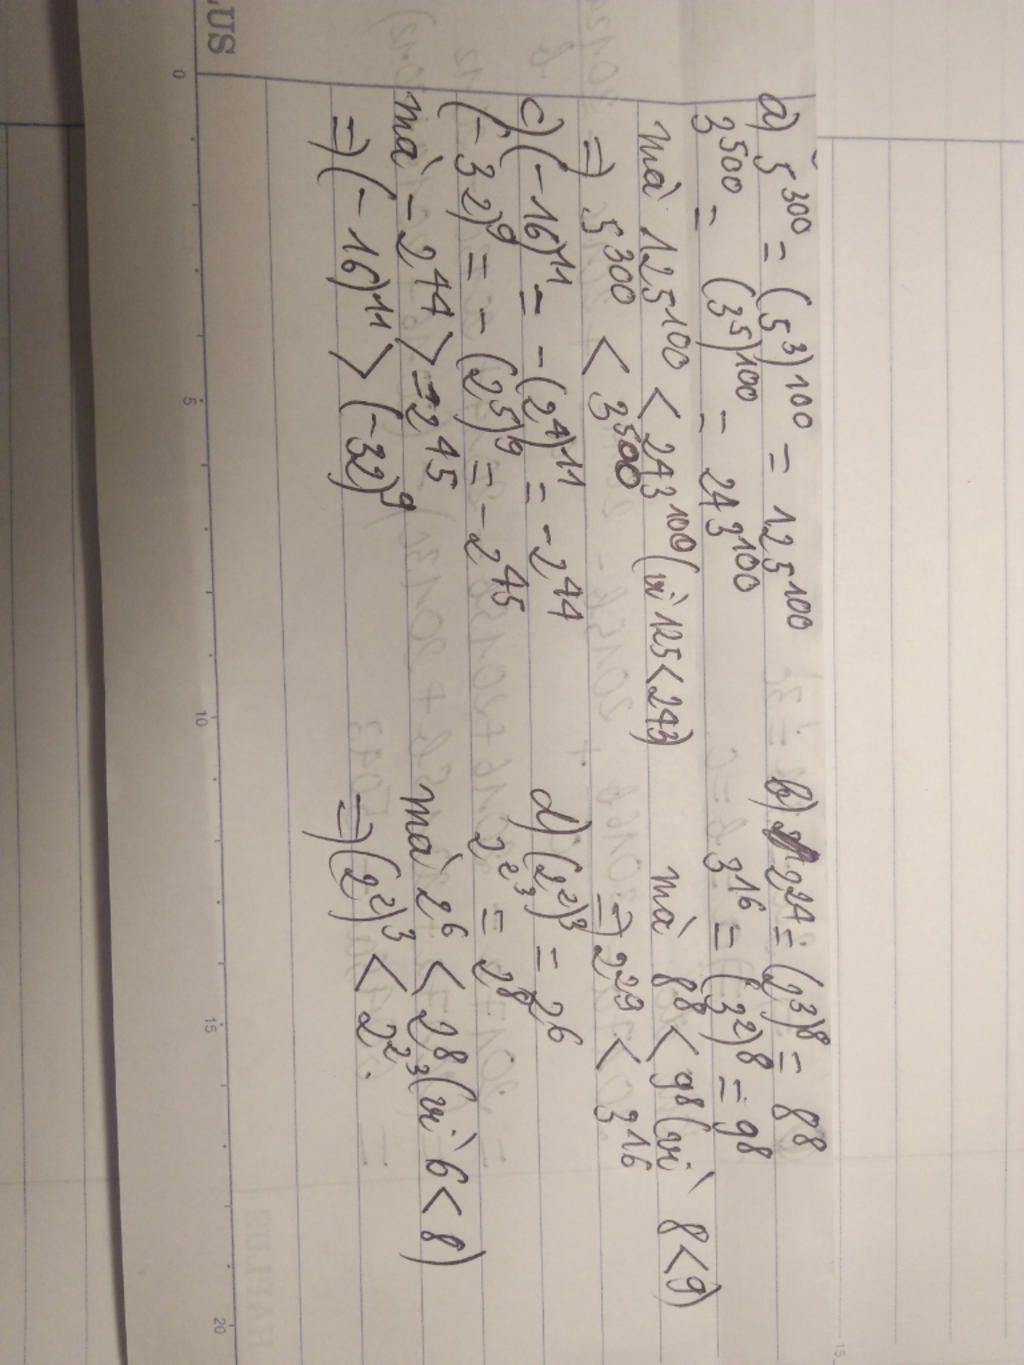 LUS
0 5 10 15 20
a) 5³⁰⁰ = (5³)¹⁰⁰ = 125¹⁰⁰
3⁵⁰⁰ = (3⁵)¹⁰⁰ = 243¹⁰⁰
mà 125¹⁰⁰ < 243¹⁰⁰ (vì 125 < 243)
⇒ 5³⁰⁰ < 3⁵⁰⁰
b) 2²⁴ = (2³)⁸ = 8⁸
3¹⁶ = (3²)⁸ = 9⁸
mà 8⁸ < 9⁸ (vì 8 < 9)
⇒ 2²⁹ < 3¹⁶
c) (-16)¹¹ = -(2⁴)¹¹ = -2⁴⁴
(-32)⁹ = -(2⁵)⁹ = -2⁴⁵
mà -2⁴⁴ > -2⁴⁵
⇒ (-16)¹¹ > (-32)⁹
d) (2²)³ = 2⁶
2^2^3 = 2⁸
mà 2⁶ < 2⁸ (vì 6 < 8)
⇒ (2²)³ < 2^2^3.